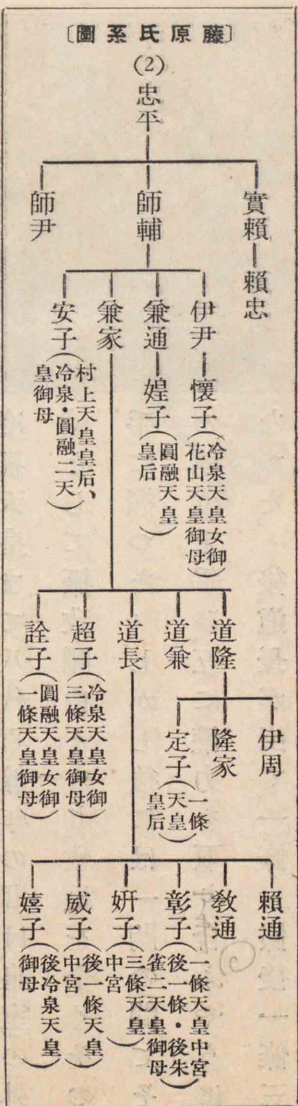 〔藤原氏系圖〕
(2)
忠平
實賴
賴忠
師輔
師尹
伊尹
懷子(冷泉天皇女御
花山天皇御母)
兼通
媓子(圓融天皇
皇后)
兼家
安子(村上天皇皇后、
冷泉・圓融二天
皇御母)
道隆
伊周
隆家
定子(一條
天皇
皇后)
道兼
道長
超子(冷泉天皇女御
三條天皇御母)
詮子(圓融天皇女御
一條天皇御母)
賴通
敎通
彰子(一條天皇中宮
後一條・後朱
雀二天皇御母)
姸子(三條天皇
中宮)
威子(後一條天皇
中宮)
嬉子(後冷泉天皇
御母)